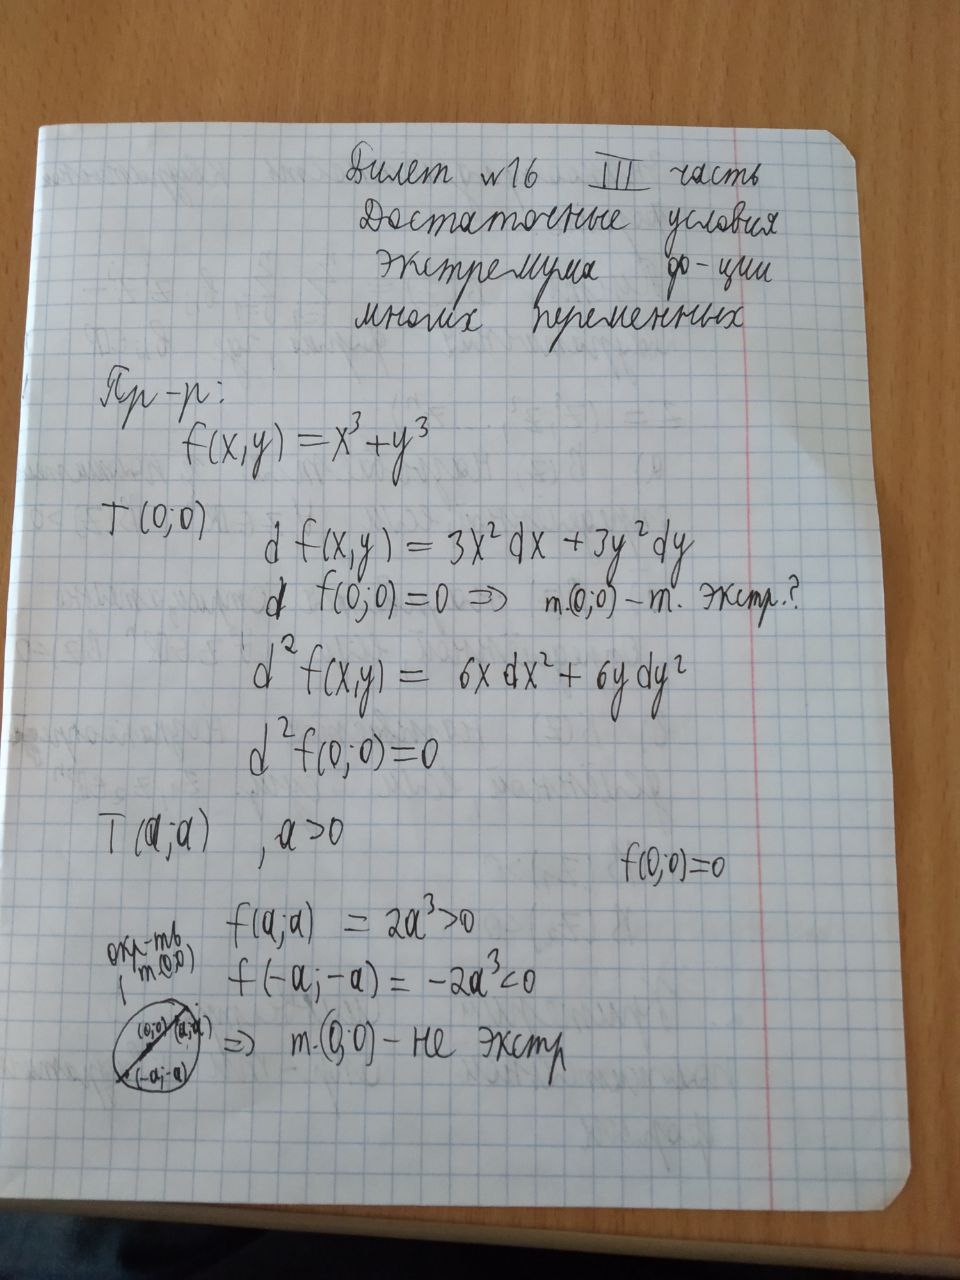 Билет №16 III часть
Достаточные условия
экстремума ф-ции
многих переменных
Пр-р:
f(x,y) = x³+y³
T(0;0)
d f(x,y) = 3x²dx + 3y²dy
d f(0;0)=0 => т.(0;0) – т. экстр.?
d²f(x,y) = 6x dx² + 6y dy²
d²f(0;0)=0
T(a;a) , a>0
f(0;0)=0
f(a;a) = 2a³>0
окр-ть
т.(0;0)
f(-a;-a) = -2a³<0
(0;0) (a;a)
(-a;-a)
=> т.(0;0) – не экстр